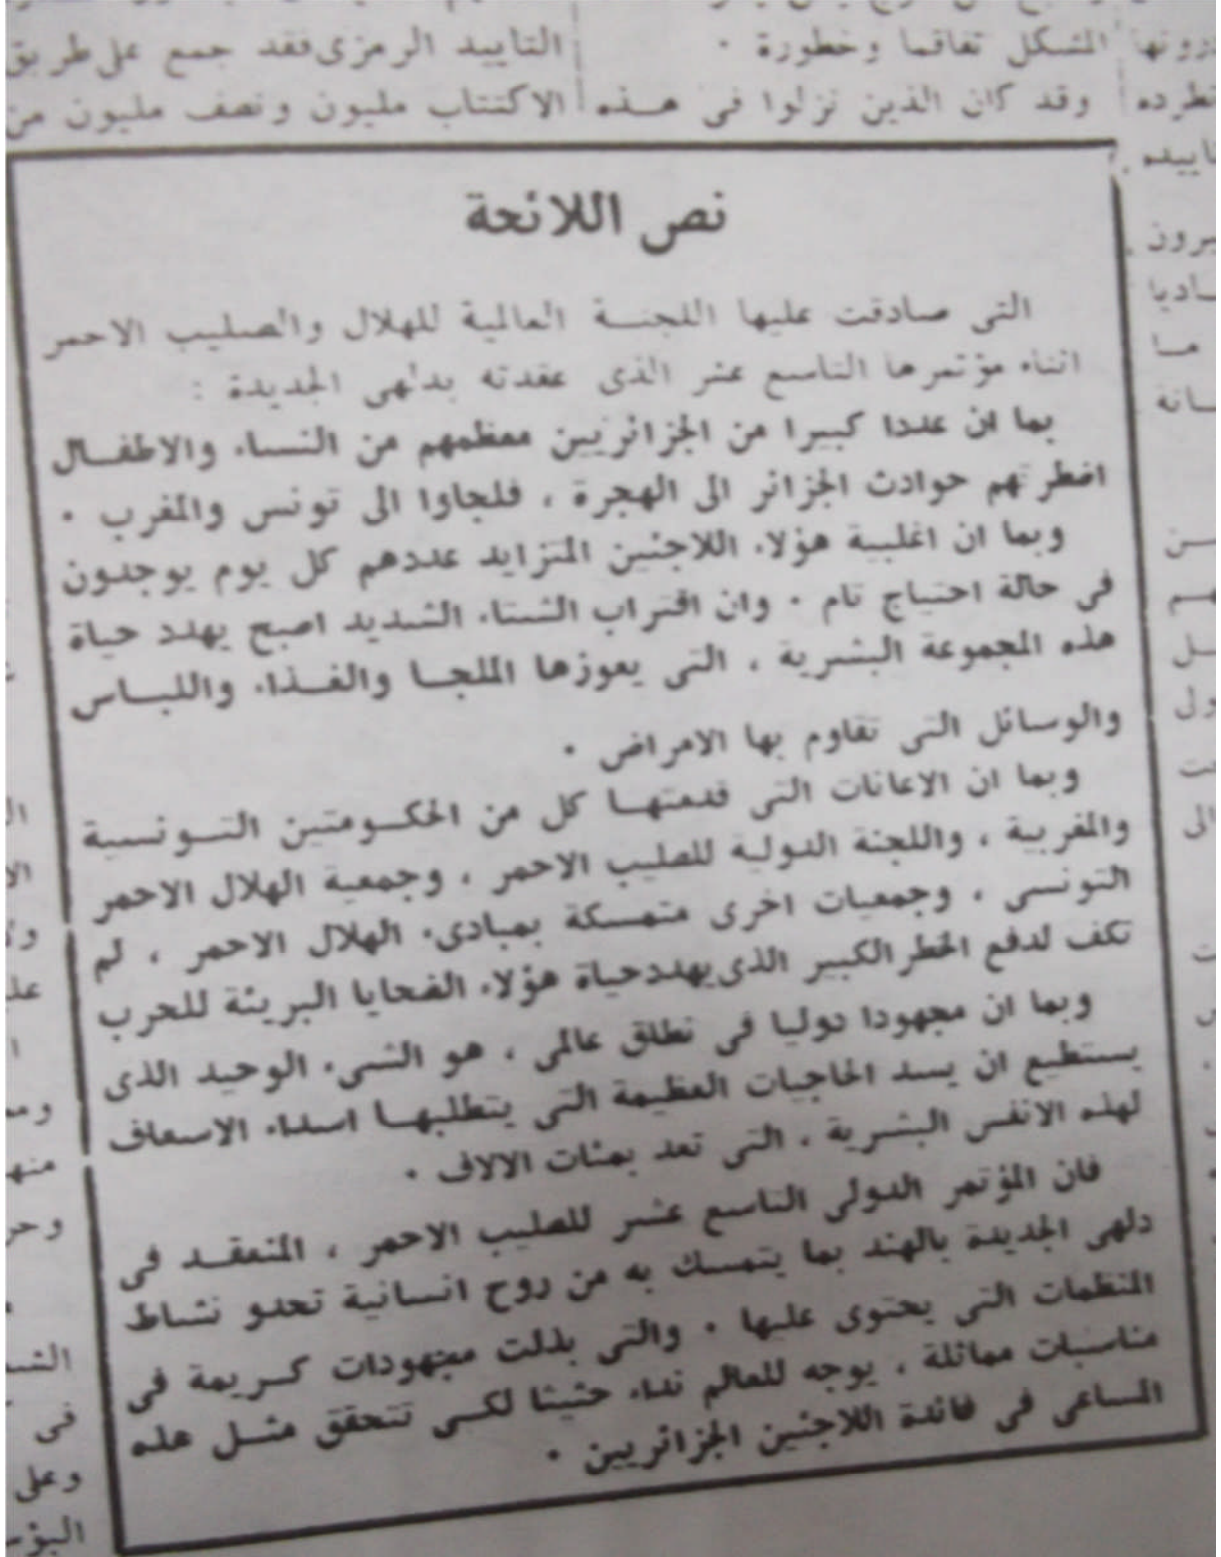 درونها المشكل تفاقما وخطورة .
وقد كان الذين نزلوا في هذه
التاييد الرمزى فقد جمع على طريق
الاكتتاب مليون ونصف مليون من
نص اللائحة
التى صادقت عليها اللجنة العالمية للهلال والصليب الاحمر
اثناء مؤتمرها التاسع عشر الذى عقدته بدلهى الجديدة :
بما ان عددا كبيرا من الجزائريين معظمهم من النساء والاطفال
اضطرتهم حوادث الجزائر الى الهجرة ، فلجاوا الى تونس والمغرب .
وبما ان اغلبية هؤلاء اللاجئين المتزايد عددهم كل يوم يوجدون
فى حالة احتياج تام . وان اقتراب الشتاء الشديد اصبح يهدد حياة
هذه المجموعة البشرية ، التى يعوزها الملجا والغذاء واللباس
والوسائل التى تقاوم بها الامراض .
وبما ان الاعانات التى قدمتها كل من الحكومتين التونسية
والمغربية ، واللجنة الدولية للصليب الاحمر ، وجمعية الهلال الاحمر
التونسى ، وجمعيات اخرى متمسكة بمبادىء الهلال الاحمر ، لم
تكف لدفع الخطر الكبير الذى يهدد حياة هؤلاء الضحايا البريئة للحرب
وبما ان مجهودا دوليا فى نطلق عالمى ، هو الشىء الوحيد الذى
يستطيع ان يسد الحاجيات العظيمة التى يتطلبها اسداء الاسعاف
لهذه الانفس البشرية ، التى تعد بمئات الالاف .
فان المؤتمر الدولى التاسع عشر للصليب الاحمر ، المنعقد فى
دلهى الجديدة بالهند بما يتمسك به من روح انسانية تحدو نشاط
المنظمات التى يحتوى عليها . والتى بذلت مجهودات كريمة فى
مناسبات مماثلة ، يوجه للعالم نداء حثيثا لكى تتحقق مثل هذه
المساعى فى فائدة اللاجئين الجزائريين .